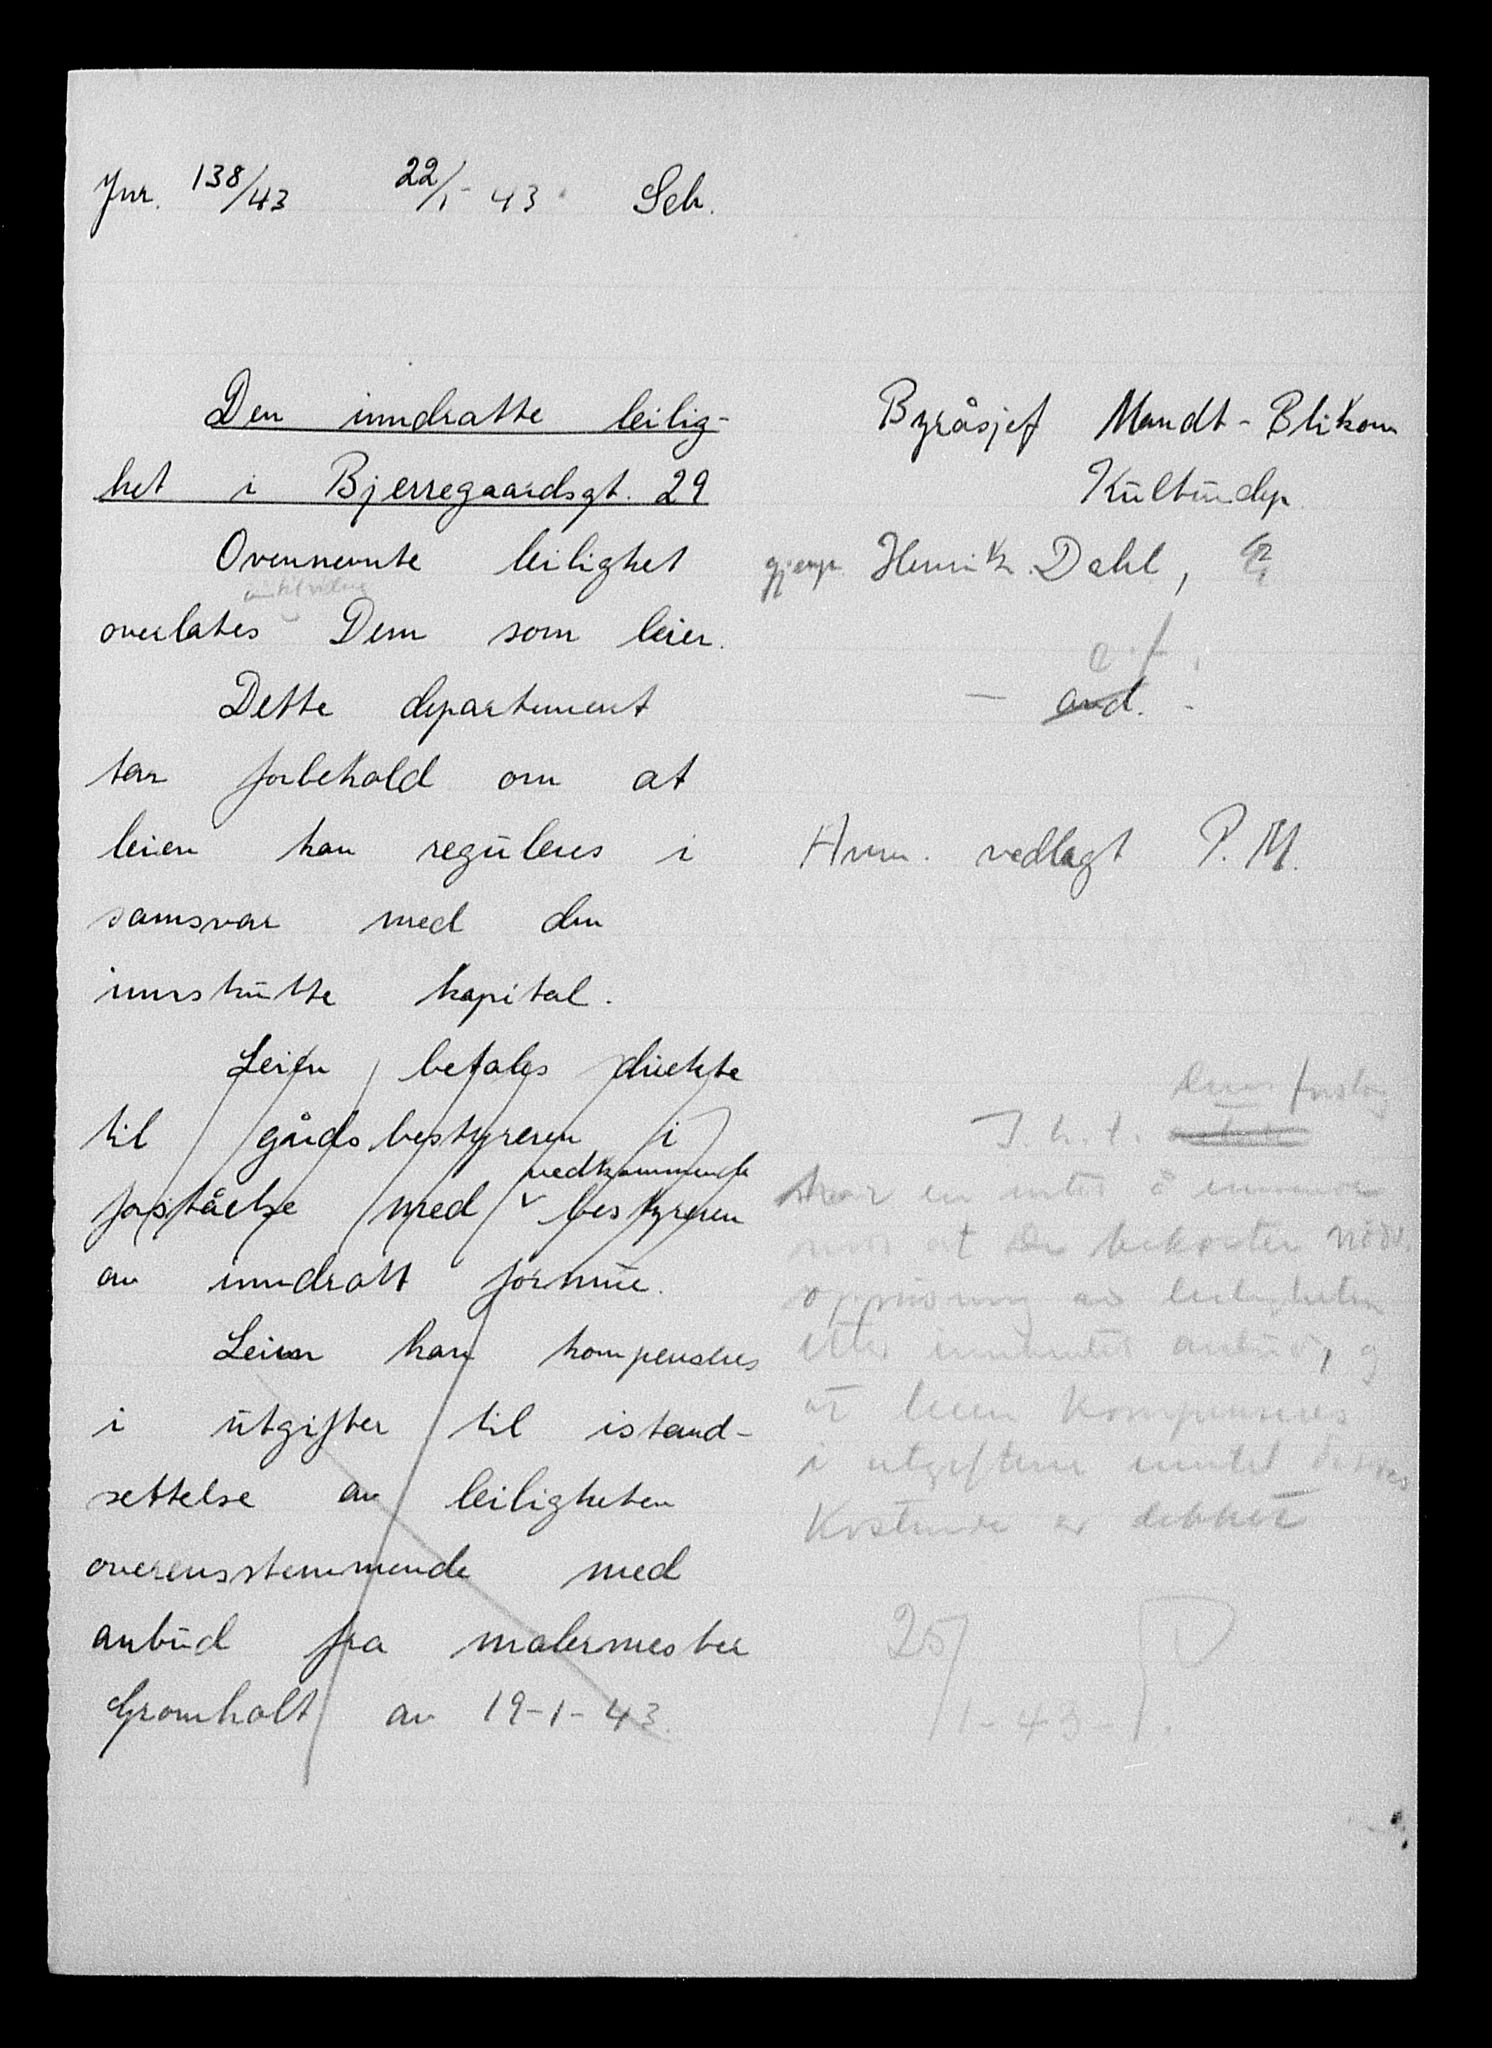 Jnr. 138/43 22/1-43 Sch.
Den inndratte leilig-
het i Bjerregaardsgt. 29
Ovennevnte leilighet
overlates Dem som leier.
Dette departement
tar forbehold om at
leien kan reguleres i
samsvar med den
innskutte kapital.
Leien betales direkte
til gårdsbestyreren i
vedkommende
forståelse med bestyreren
av inndratt formue.
Leien kan kompenseres
i utgifter til istand-
settelse av leiligheten
overensstemmende med
anbud fra malermester
Gromholt av 19-1-43.
Byråsjef Mandt-Blikom
Kulturdep.
gjenp. Henrik Dahl,
e.f.
- and. -
Anm. vedlagt P.M.
forslag
I.h.t.
har en intet å innvende
mot at De bekoster nödv.
oppussing av leiligheten
etter innhentet anbud, og
at leien kompenseres
i utgiftene inntil disses
Kostende er dekket
25/1-43-